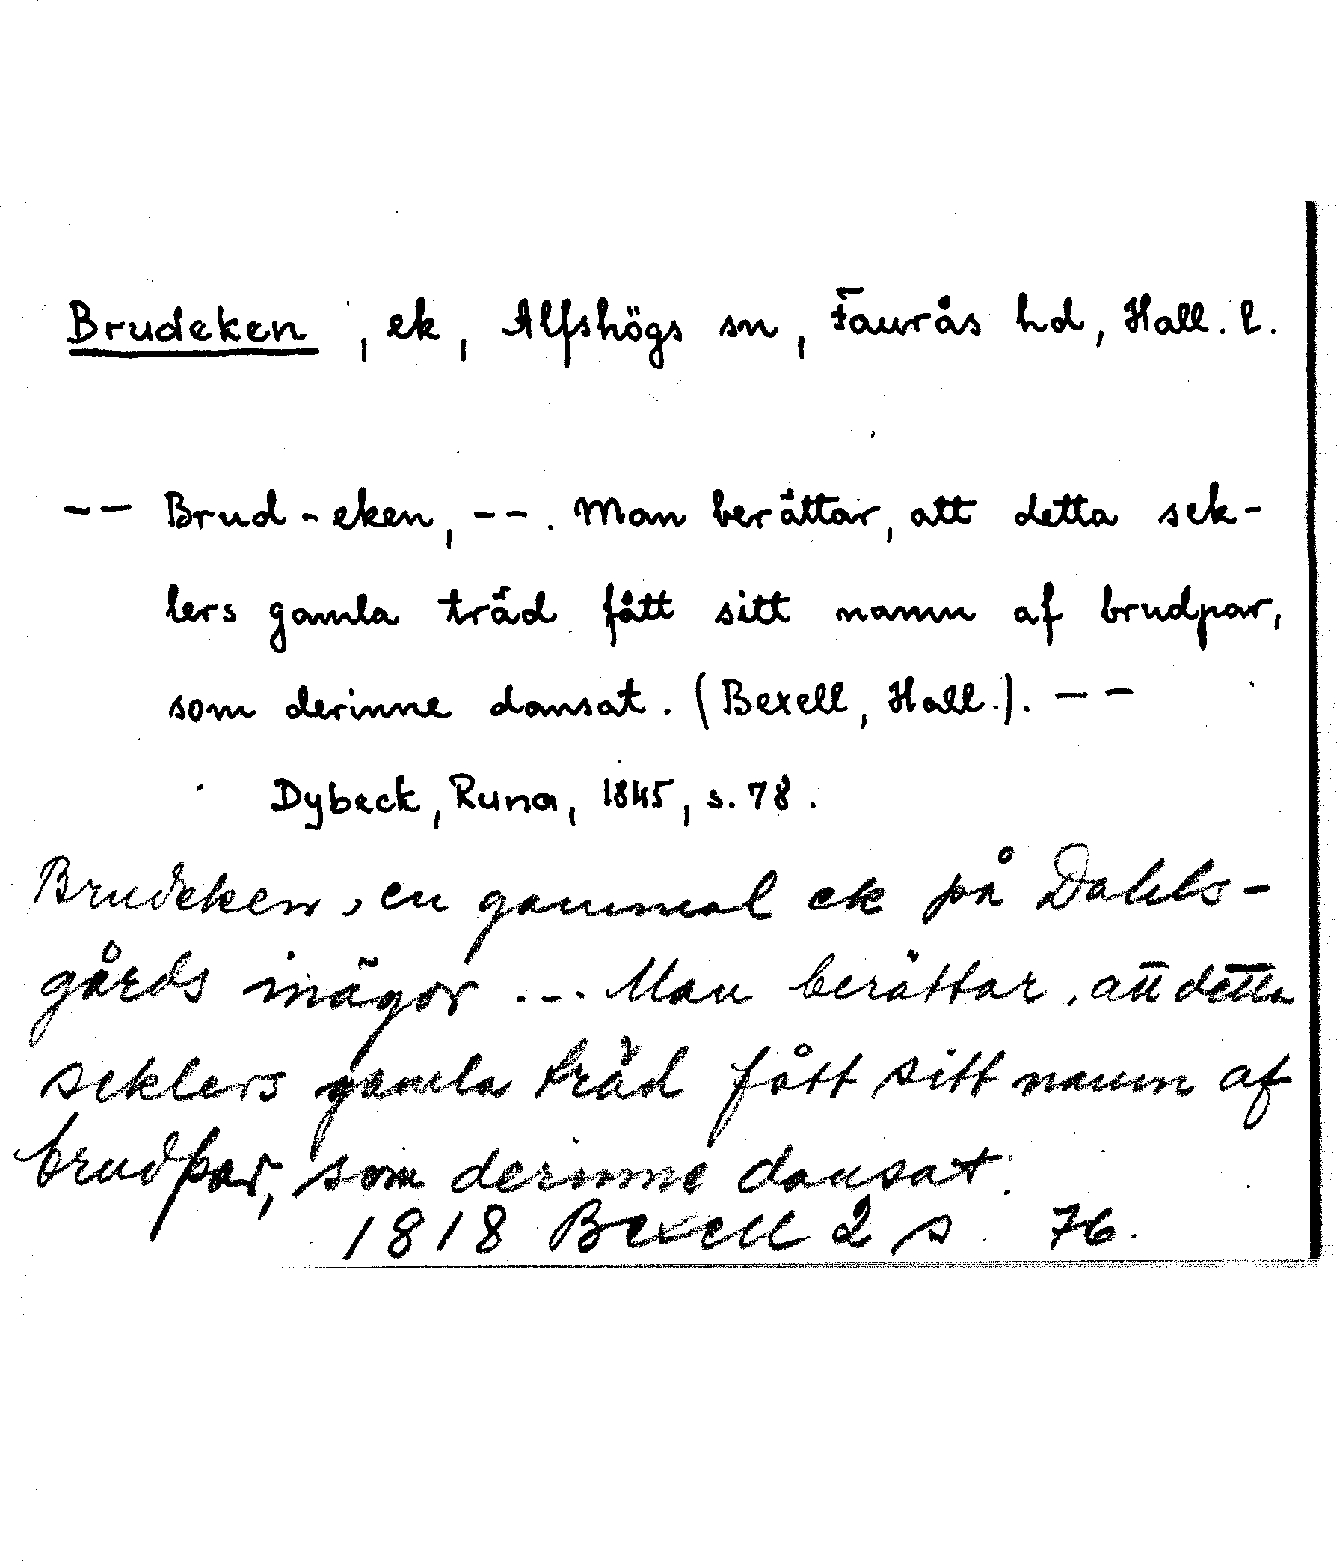 Brudeken, ek, Alfshögs sn, Faurås hd, Hall. l.
-- Brud-eken, --. Man berättar, att detta sek-
lers gamla träd fått sitt namn af brudpar,
som derinne dansat. (Bexell, Hall.). --
Dybeck, Runa, 1845, s. 78.
Brudeken, en gammal ek på Dahls-
gårds inägor ... Man berättar, att detta
seklers gamla träd fått sitt namn af
brudpar, som derinne dansat.
1818 Bexell 2 s. 76.